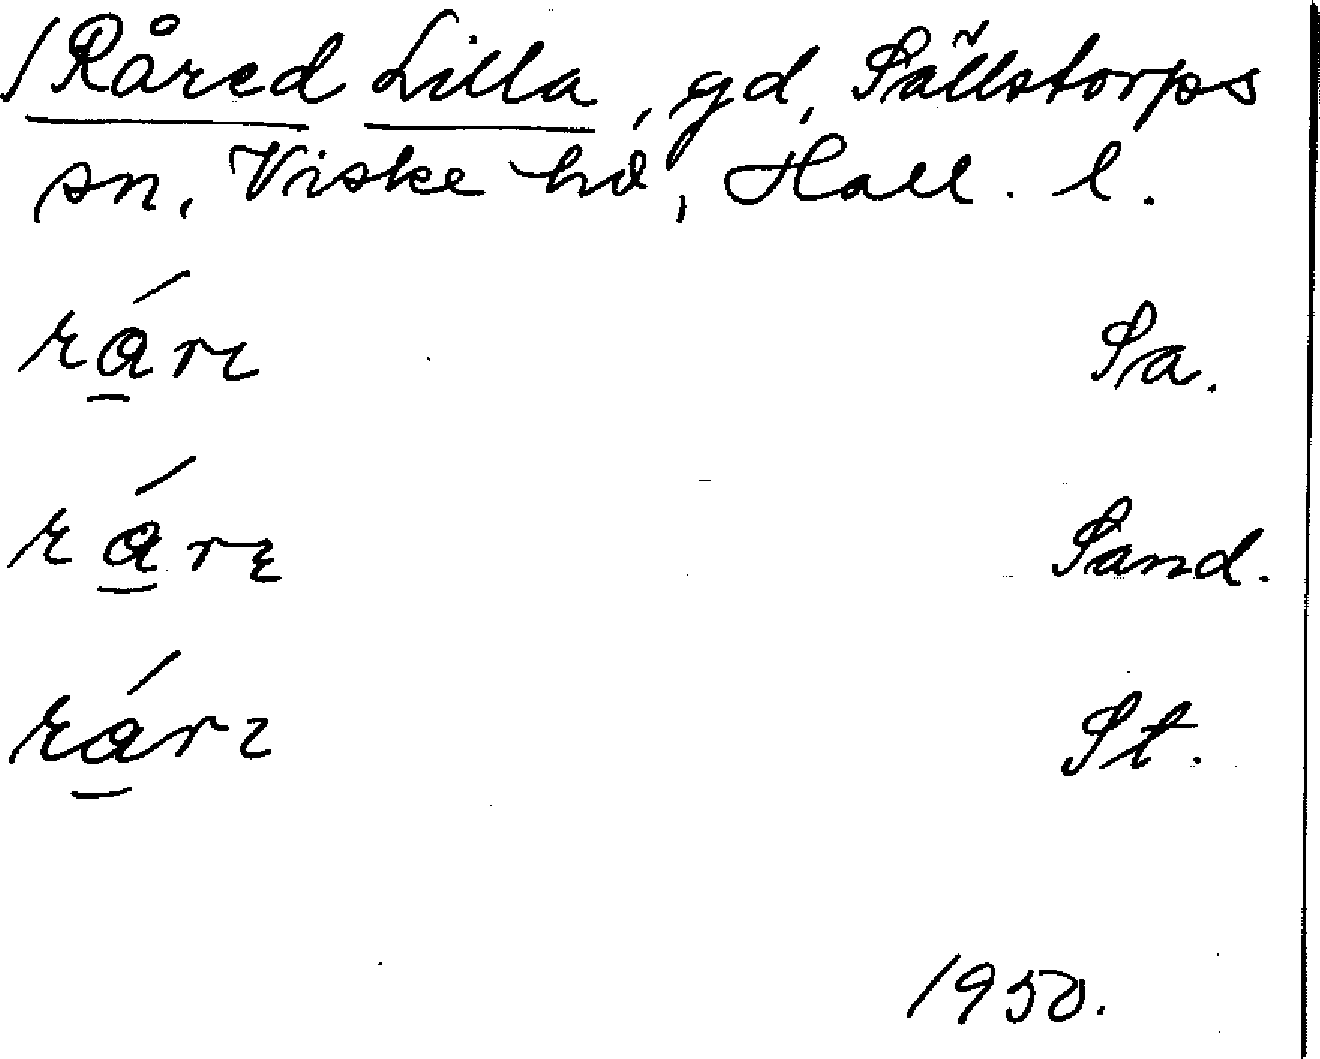 / Råred Lilla, gd, Sällstorps
sn, Viske hd, Hall. l.
rá̱rɩ Sa.
rá̱rɛ Sand.
rá̱rɩ St.
1950.